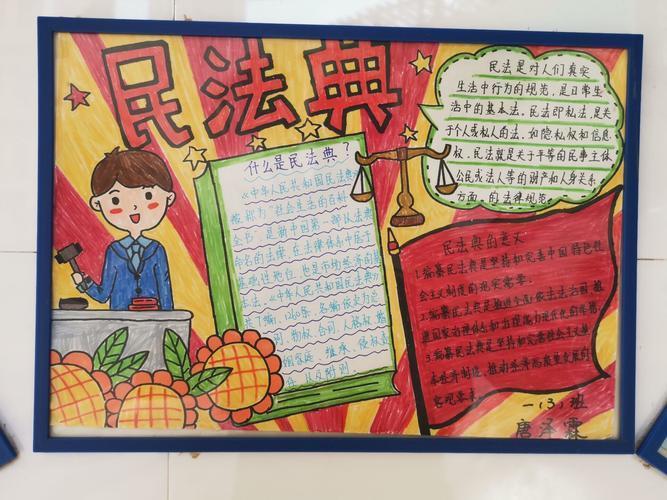 民法典
什么是民法典？
《中华人民共和国民法典》
被称为"社会生活的百科
全书"是新中国第一部以法典
命名的法律，在法律体系中居于
基础性地位，也是市场经济的基
本法。《中华人民共和国民法典》
共7编、1260条，各编依次为总
则、物权、合同、人格权、婚
姻家庭、继承、侵权责
任以及附则。
民法是对人们真实
生活中行为的规范，是日常生
活中的基本法。民法即私法，是关
于个人或私人的法，如隐私权和信息
权，民法就是关于平等的民事主体
公民或法人等的财产和人身关系
方面的法律规范。
民法典的意义
1.编纂民法典是坚持和完善中国特色社
会主义制度的现实需要。
2.编纂民法典是推进全面依法治国、推
进国家治理体系和治理能力现代化的
3.编纂民法典是坚持和完善社会主义
基本经济制度、推动经济高质量发展的
客观要求。
一（3）班
唐泽霖